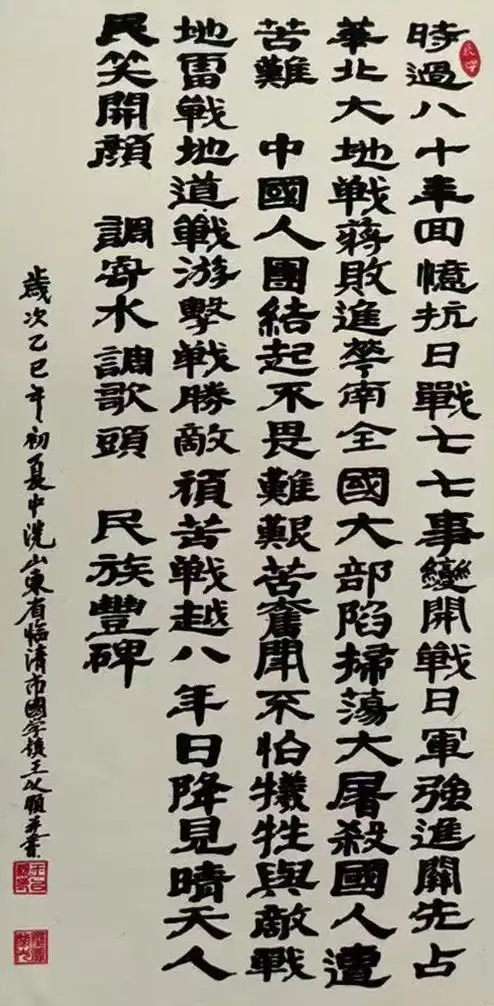 時過八十年回憶抗日戰七七事變開戦日軍強進關先占
華北大地戦蔣敗進華南全國大部陷掃蕩大屠殺國人遭
苦難 中國人團結起不畏難艱苦奮鬥不怕犧牲與敵戦
地雷戦地道戦游擊戦勝敵頑苦戦越八年日降見晴天人
民笑開顔 調寄水調歌頭 民族豐碑
歲次乙巳年初夏中浣山東省臨清市國學王以順書